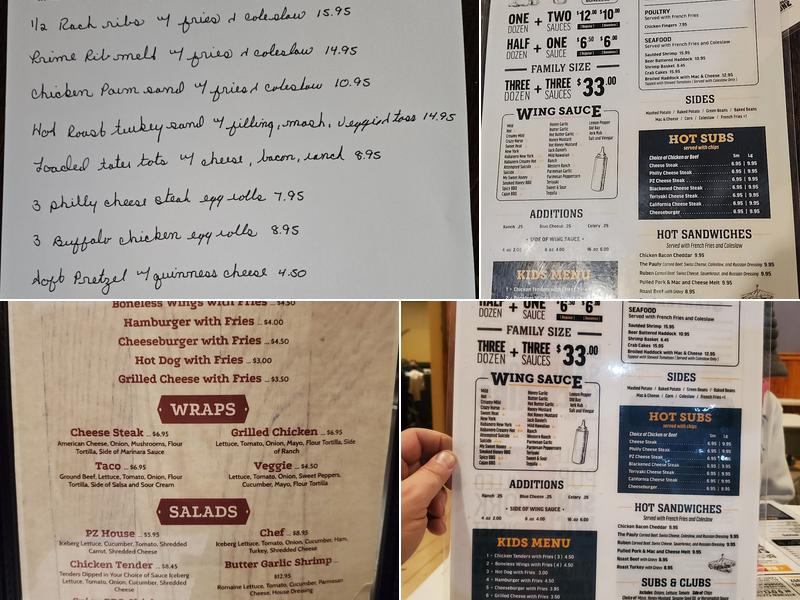 1/2 Rack ribs w/ fries & coleslaw 15.95
Prime Rib melt w/ fries & coleslaw 14.95
Chicken Parm sand w/ fries & coleslaw 10.95
Hot Roast turkey sand w/ filling, mash, veggie & toss 14.95
Loaded tater tots w/ cheese, bacon, ranch 8.95
3 philly cheese steak egg rolls 7.95
3 Buffalo chicken egg rolls 8.95
Soft Pretzel w/ guinness cheese 4.50
ONE DOZEN + TWO SAUCES $12.00 $10.00
HALF DOZEN + ONE SAUCE $6.50 $6.00
FAMILY SIZE
THREE DOZEN + THREE SAUCES $33.00
WING SAUCE
Mild
Hot
Creamy Mild
Crazy Horse
Sweet Heat
New York
Habanero New York
Habanero Creamy Hot
Attempted Suicide
Suicide
My Sweet Honey
Smoked Honey BBQ
Spicy BBQ
Cajun BBQ
Honey Garlic
Butter Garlic
Hot Butter Garlic
Honey Mustard
Hot Honey Mustard
Jack Daniel's
Mild Hawaiian
Ranch
Western
Parmesan Garlic
Parmesan Peppercorn
Teriyaki
Sweet & Sour
Tequila
Lemon Pepper
Old Bay
Jerk Rub
Salt and Vinegar
ADDITIONS
Ranch .25 Blue Cheese .25 Celery .25
• SIDE OF WING SAUCE •
4 oz 2.00 16 oz 6.00
KIDS MENU
1 • Chicken Tenders with Fries
POULTRY
Served with French Fries
Chicken Fingers 7.95
SEAFOOD
Served with French Fries and Coleslaw
Sautéed Shrimp 15.95
Beer Battered Haddock 10.95
Shrimp Basket 8.45
Crab Cakes 15.95
Broiled Haddock with Mac & Cheese 12.95
SIDES
Mashed Potatoes / Baked Potato / Green Beans / Baked Beans
Mac & Cheese / Corn / Coleslaw / French Fries +1
HOT SUBS
served with chips
Choice of Chicken or Beef Sm Lg
Cheese Steak 6.95 | 9.95
Philly Cheese Steak 6.95 | 9.95
PZ Cheese Steak 6.95 | 9.95
Blackened Cheese Steak 6.95 | 9.95
Teriyaki Cheese Steak 6.95 | 9.95
California Cheese Steak 6.95 | 9.95
Cheeseburger 6.95 | 9.95
HOT SANDWICHES
Served with French Fries and Coleslaw
Chicken Bacon Cheddar 9.95
The Pauly Corned Beef, Swiss Cheese, Coleslaw, and Russian Dressing 9.95
Ruben Corned Beef, Swiss Cheese, Sauerkraut, and Russian Dressing 9.95
Pulled Pork & Mac and Cheese Melt 9.95
Roast Beef with Gravy 8.95
Boneless Wings with Fries ... $4.50
Hamburger with Fries ... $4.00
Cheeseburger with Fries ... $4.50
Hot Dog with Fries ... $3.00
Grilled Cheese with Fries ... $3.50
WRAPS
Cheese Steak ... $6.95
American Cheese, Onion, Mushrooms, Flour
Tortilla, Side of Marinara Sauce
Grilled Chicken ... $6.95
Lettuce, Tomato, Onion, Mayo, Flour Tortilla, Side
of Ranch
Taco ... $6.95
Ground Beef, Lettuce, Tomato, Onion, Flour
Tortilla, Side of Salsa and Sour Cream
Veggie ... $4.50
Lettuce, Tomato, Onion, Sweet Peppers,
Cucumber, Mayo, Flour Tortilla
SALADS
PZ House ... $5.95
Iceberg Lettuce, Cucumber, Tomato, Shredded
Carrot, Shredded Cheese
Chef ... $8.95
Iceberg Lettuce, Tomato, Onion, Cucumber, Ham,
Turkey, Shredded Cheese
Chicken Tender ... $8.45
Tenders Dipped in Your Choice of Sauce Iceberg
Lettuce, Tomato, Onion, Cucumber, Shredded
Cheese
Butter Garlic Shrimp ...
$12.95
Romaine Lettuce, Tomato, Cucumber, Parmesan
Cheese, House Dressing
HALF DOZEN + ONE SAUCE $6.50 $6
FAMILY SIZE
THREE DOZEN + THREE SAUCES $33.00
WING SAUCE
Mild
Hot
Creamy Mild
Crazy Horse
Sweet Heat
New York
Habanero New York
Habanero Creamy Hot
Attempted Suicide
Suicide
My Sweet Honey
Smoked Honey BBQ
Spicy BBQ
Cajun BBQ
Honey Garlic
Butter Garlic
Hot Butter Garlic
Honey Mustard
Hot Honey Mustard
Jack Daniel's
Mild Hawaiian
Ranch
Western
Parmesan Garlic
Parmesan Peppercorn
Teriyaki
Sweet & Sour
Tequila
Lemon Pepper
Old Bay
Jerk Rub
Salt and Vinegar
ADDITIONS
Ranch .25 Blue Cheese .25 Celery .25
• SIDE OF WING SAUCE •
4 oz 2.00 8 oz 4.00 16 oz 6.00
KIDS MENU
1 • Chicken Tenders with Fries (3) 4.50
2 • Boneless Wings with Fries (4) 4.50
3 • Hot Dog with Fries 3.00
4 • Hamburger with Fries 4.00
5 • Cheeseburger with Fries 4.50
6 • Grilled Cheese with Fries 3.50
SEAFOOD
Served with French Fries and Coleslaw
Sautéed Shrimp 15.95
Beer Battered Haddock 10.95
Shrimp Basket 8.45
Crab Cakes 15.95
Broiled Haddock with Mac & Cheese 12.95
SIDES
Mashed Potatoes / Baked Potato / Green Beans / Baked Beans
Mac & Cheese / Corn / Coleslaw / French Fries +1
HOT SUBS
served with chips
Choice of Chicken or Beef Sm Lg
Cheese Steak 6.95 | 9.95
Philly Cheese Steak 6.95 | 9.95
PZ Cheese Steak 6.95
Blackened Cheese Steak 6.95 | 9.95
Teriyaki Cheese Steak 6.95 | 9.95
California Cheese Steak 6.95 | 9.95
Cheeseburger 6.95 | 9.95
HOT SANDWICHES
Served with French Fries and Coleslaw
Chicken Bacon Cheddar 9.95
The Pauly Corned Beef, Swiss Cheese, Coleslaw, and Russian Dressing 9.95
Ruben Corned Beef, Swiss Cheese, Sauerkraut, and Russian Dressing 9.95
Pulled Pork & Mac and Cheese Melt 9.95
Roast Beef with Gravy 8.95
Roast Turkey with Gravy 8.95
SUBS & CLUBS